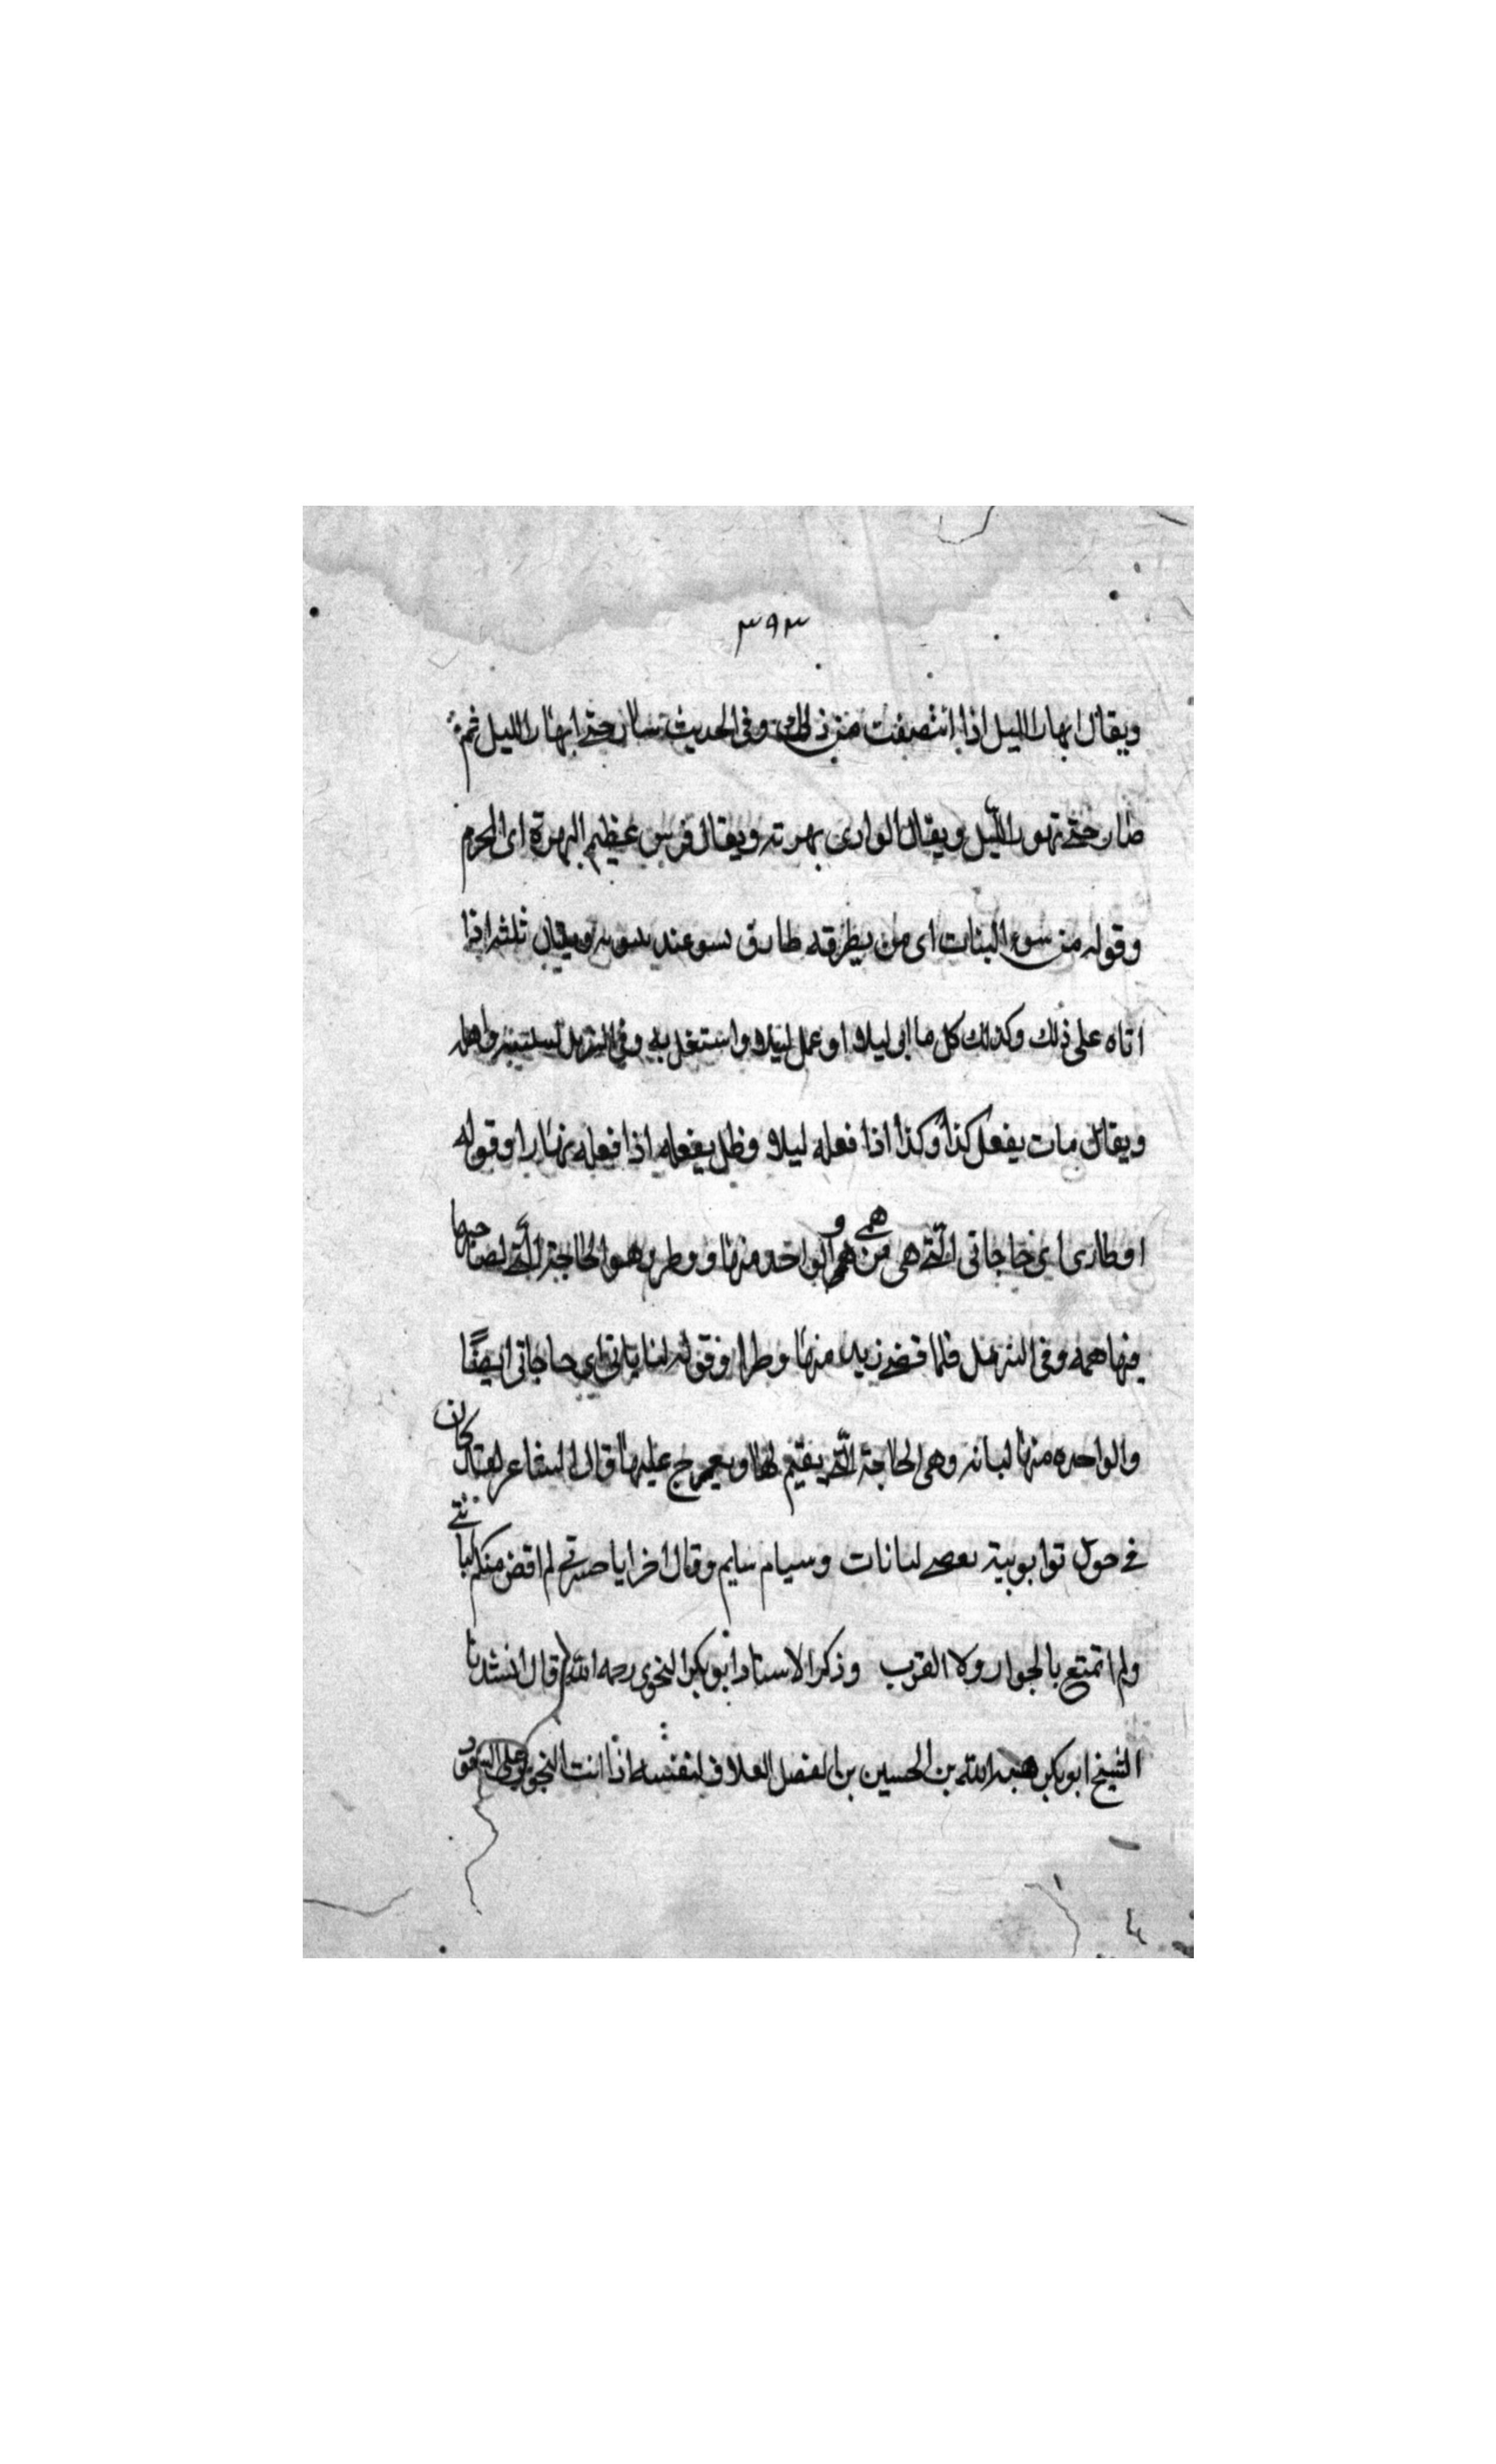 ٣٩٣
ويقال ابهار الليل اذا انتصفت من ذلك وفى الحديث سار حتى ابهار الليل ثم
صار حتى تهور الليل ويقال الوادى بهرته ويقال فرس عظيم البهرة اى المحزم
وقوله من سوء البنات اى من يطرقه طارق سو عند ويقال ثلثه اذا
اتاه على ذلك وكذلك كل ما اتى ليلا او عمل ليلا واستغل به وفى التنزيل واهله
ويقال بات يفعل كذا وكذا اذا فعله ليلا وظل يفعله اذا فعله نهارا وقوله
اوطارى اى حاجاتى التى هى من همى و الواحد منها وطر وهو الحاجة التى لصاحبها
فيها همه وفى التنزيل فلما قضى زيد منها وطرا وقوله لباناتى اى حاجاتى ايضًا
والواحده منها لبانه وهى الحاجة التى يقيم لها ويعرج عليها قال الشاعر لقد كان
فى حول ثوا ثويته لبانات وسيام سايم وقال اخر ايا لم اقض منكم لبانتى
ولم اتمتع بالجوار ولا القرب وذكر الاستاد ابو بكر النحوى رحمه الله قال انشدنا
الشيخ ابو بكر هبه الله بن الحسين بن الفضل العلاف لنفسه اذا انت